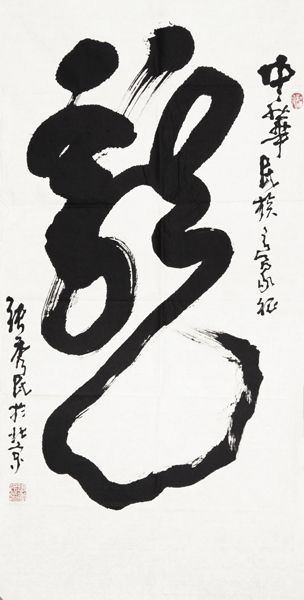 中華民族之象征
龍
張秀民於北京